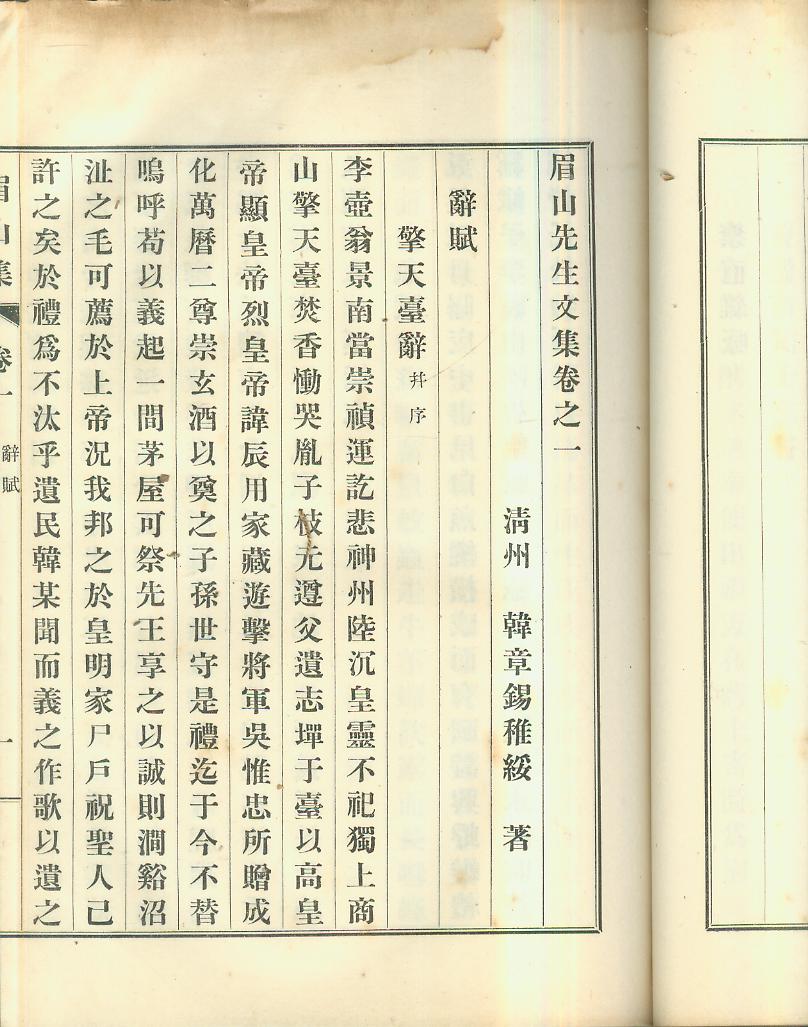 眉山先生文集卷之一
淸州　韓章錫稚綏　著
辭賦
擎天臺辭 幷序
李壺翁景南當崇禎運訖悲神州陸沉皇靈不祀獨上商
山擎天臺焚香慟哭胤子枝元遵父遺志墠于臺以高皇
帝顯皇帝烈皇帝諱辰用家藏遊擊將軍吳惟忠所贈成
化萬曆二尊崇玄酒以奠之子孫世守是禮迄于今不替
嗚呼苟以義起一間茅屋可祭先王享之以誠則澗谿沼
沚之毛可薦於上帝況我邦之於皇明家尸戶祝聖人已
許之矣於禮爲不汰乎遺民韓某聞而義之作歌以遺之
眉山集
卷一
辭賦
一